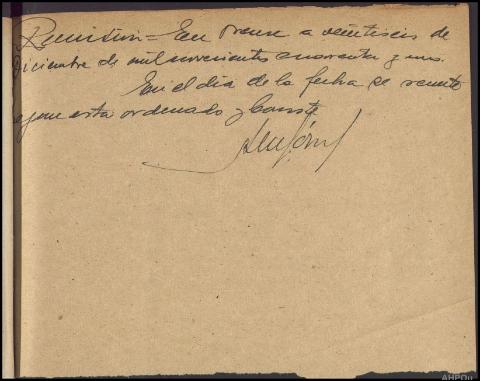 Remision = En Orense a veintiseis de
Diciembre de mil novecientos cuarenta y uno.
En el dia de la fecha se remite
esta ordenado y consta
AHPOu